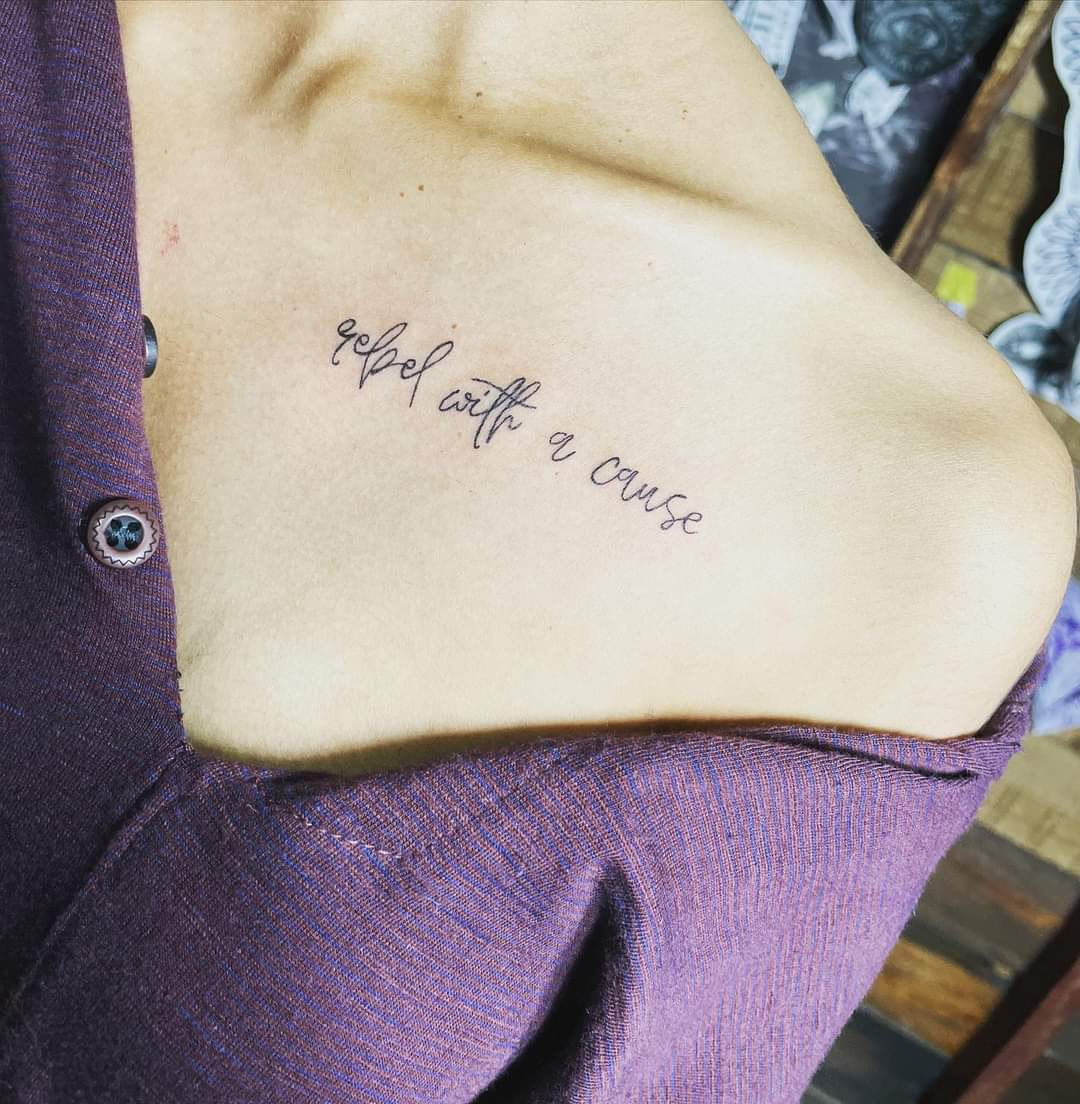 rebel with a cause